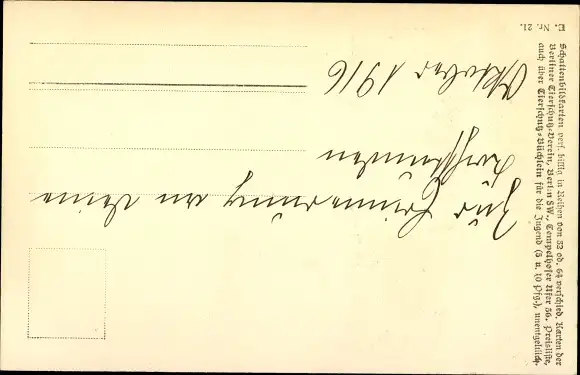 Zur Erinnerung an deine
Oktober 1916
E. Nr. 21.
Schattenbildkarten vers. billig in Reihen von 32 od. 64 verschied. Karten der
Berliner Tierschutz-Verein, Berlin SW., Tempelhofer Ufer 36. Preisliste,
auch über Tierschutz-Büchlein für die Jugend (5 u. 10 Pfg.), unentgeltlich.